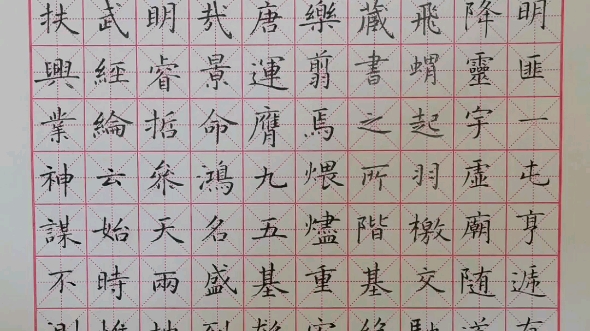 明匪一屯亨遞有
降靈宇虛廟随道
飛蝟起羽檄交馳
藏書之所階基絕
樂翦焉煨燼重宏
唐運膺九五基乾
哉景命鴻名盛烈
明睿哲叅天兩地
武經綸云始時惟
扶興業神謀不測